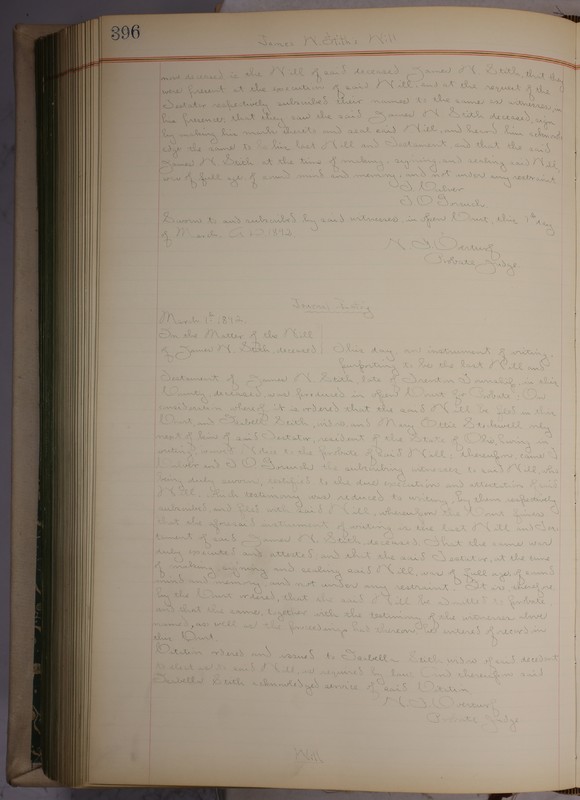 396
James N. Stith's Will
now deceased in the Will of said deceased James N. Stith, that they
were present at the execution of said Will, and at the request of the
testator respectively subscribed their names to the same as witnesses, in
his presence, that they saw the said James N. Stith deceased, sign
by making his mark thereto and seal said Will, and heard him acknowl-
edge the same to be his last Will and Testament, and that the said
James N. Stith at the time of making, signing, and sealing said Will,
was of full age, of sound mind and memory, and not under any restraint
Sworn to and subscribed by said witnesses, in open Court, this 1st day
of March A.D. 1892.
Probate Judge.
March 1st, 1892.
In the Matter of the Will
of James N. Stith deceased This day an instrument of writing,
purporting to be the last Will and
Testament of James N. Stith, late of Township, in this
County, deceased, was produced in open Court for Probate. On
consideration whereof, it is ordered that the said Will be filed in this
Court and Isabella Stith, widow, and Mary Ollie only
next of kin of said Testator, resident of the State of Ohio, having in
writing to the probate of said Will, thereupon came
and the subscribing witnesses to said Will, who
being duly sworn, testified to the due execution and attestation of said
Will. Such testimony was reduced to writing, by them respectively
subscribed, and filed with said Will, whereupon the Court finds
that the aforesaid instrument of writing is the last Will and Tes-
tament of said James N. Stith deceased that the same was
duly executed and attested, and that the said Testator, at the time
of making, signing and sealing said Will, was of full age, of sound
mind and memory and not under any restraint. It is therefore
by the Court ordered, that the said Will be admitted to probate,
and that the same, together with the testimony of the witnesses above
named, as well as the proceedings had thereon, be entered of record in
this Court.
Citation ordered and issued to Isabella Stith widow of said decedent
to elect under said Will, as required by law, and thereupon said
Isabella Stith acknowledged service of said Citation.
Probate Judge
Will